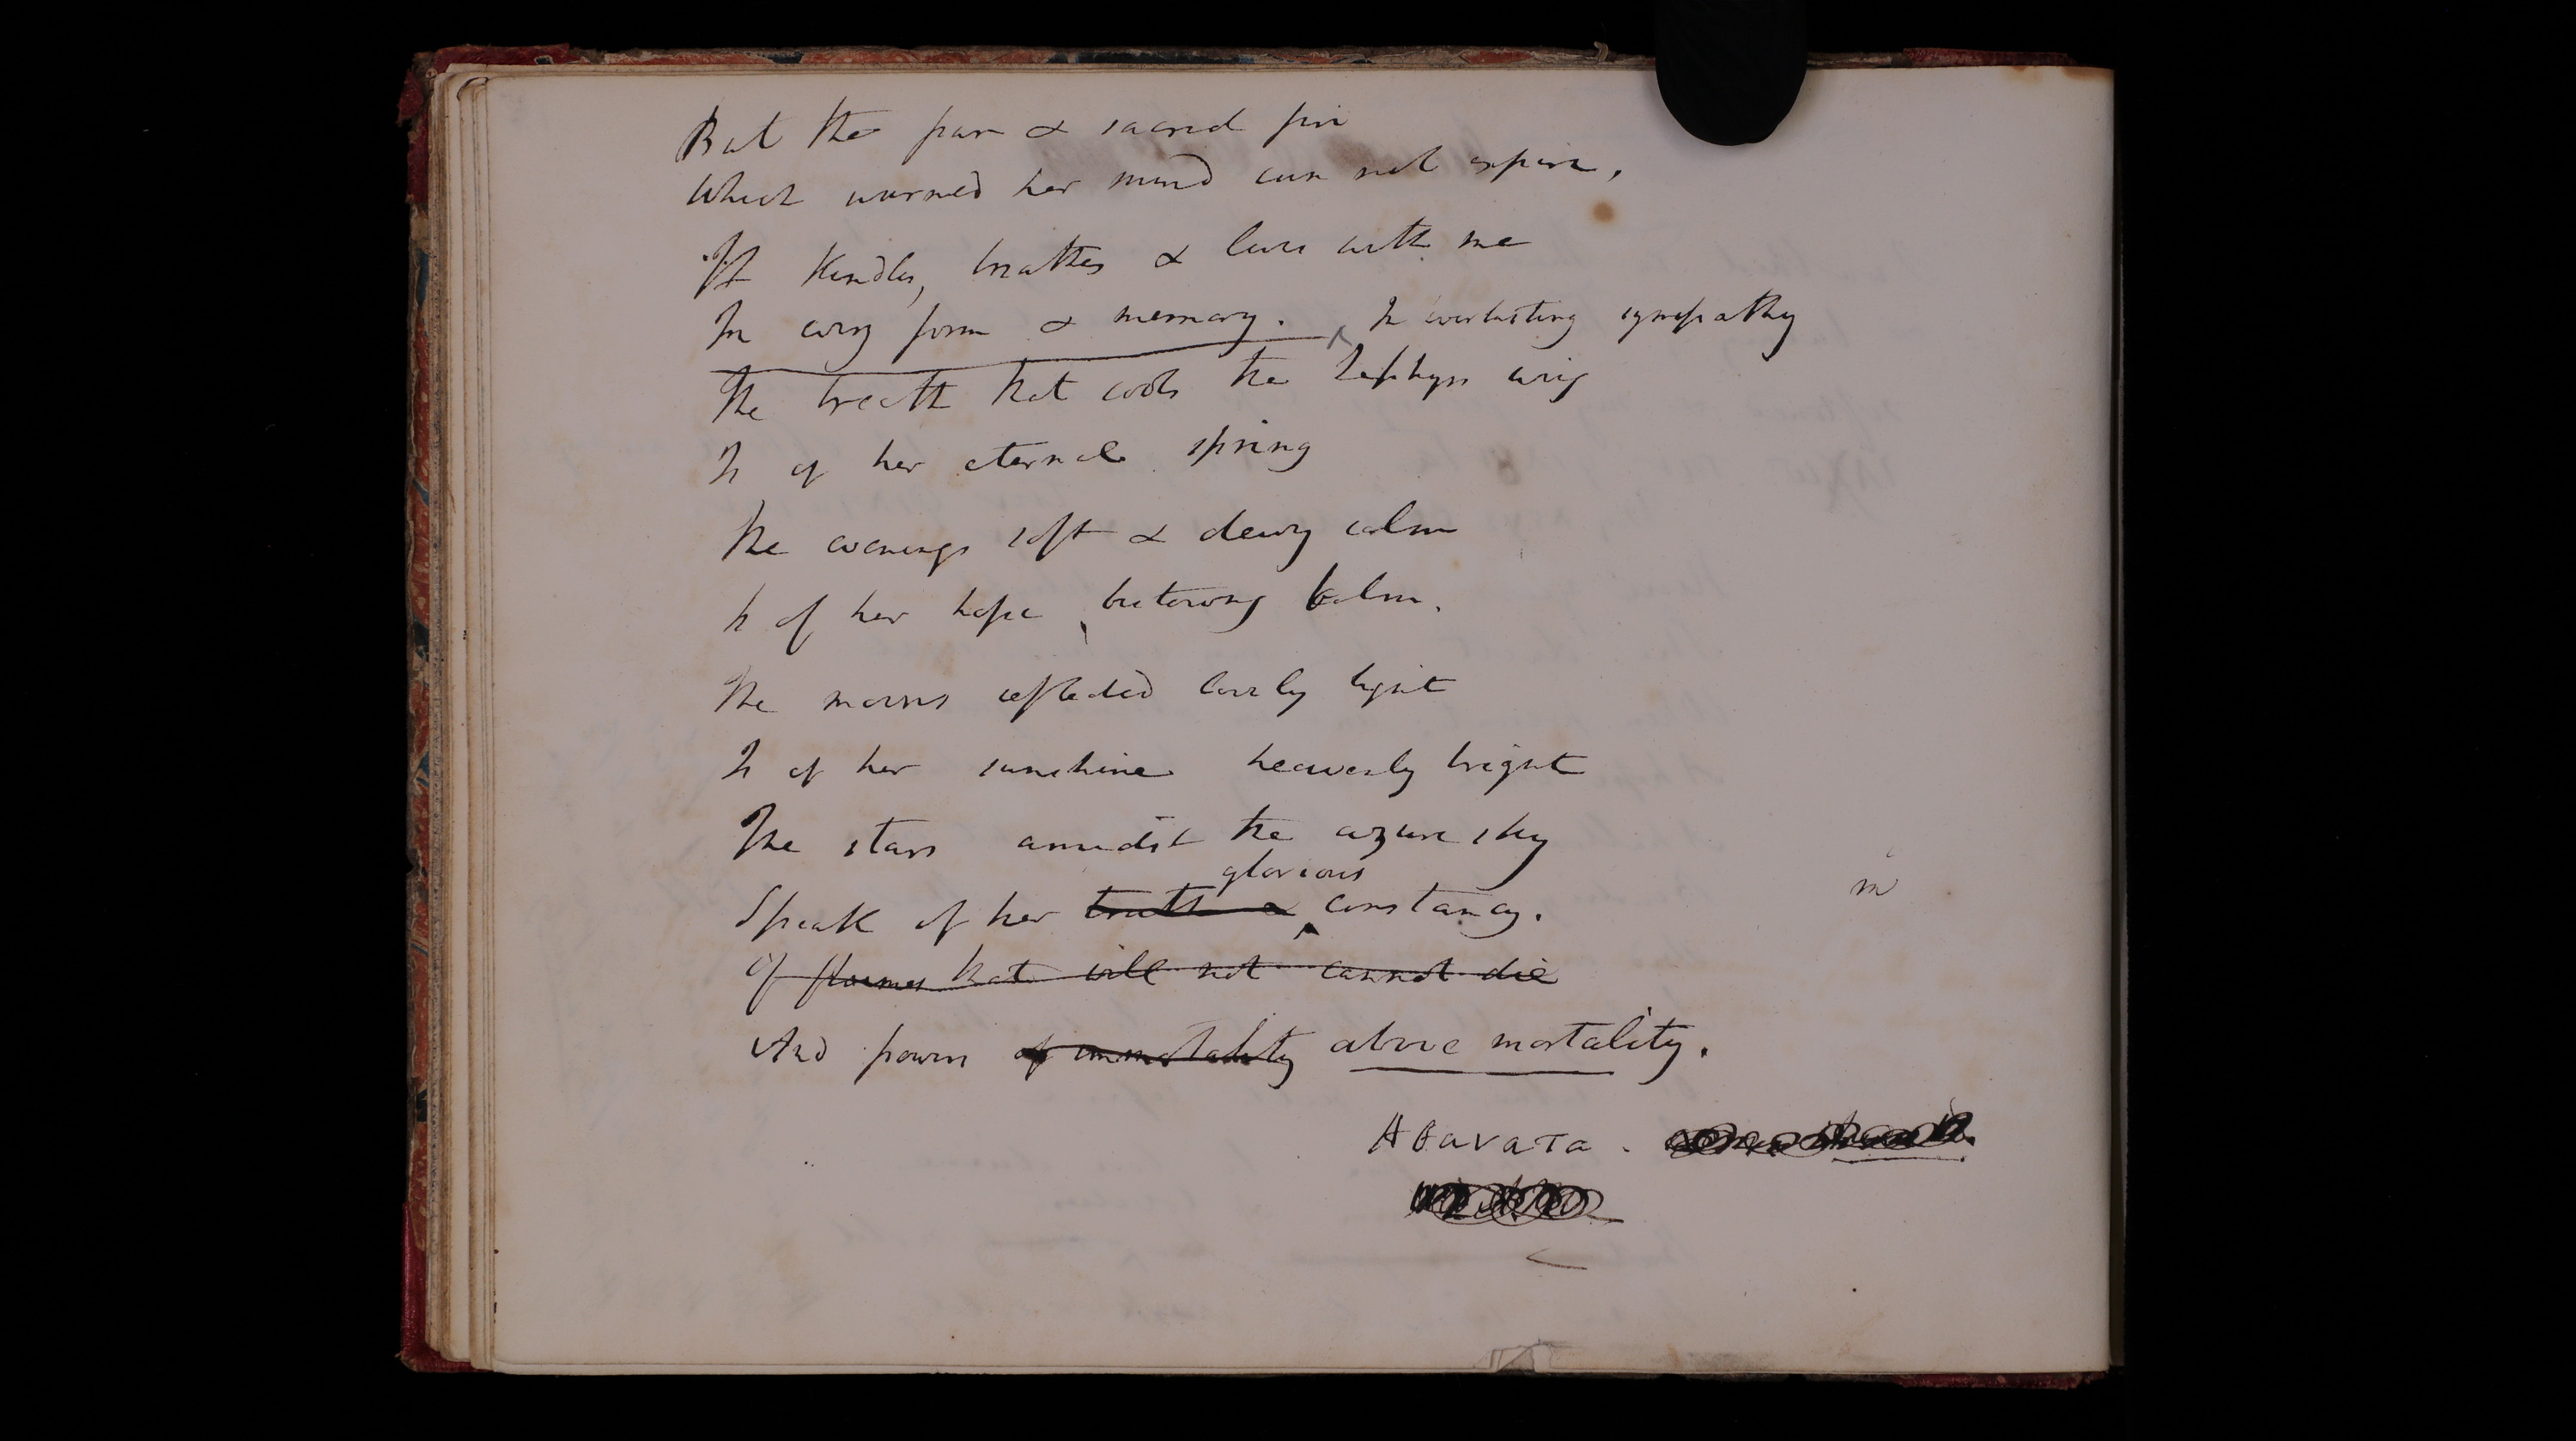 But the pure & sacred fire
Which warmed her mind can not expire,
It kindles, breathes & lives with me
In every form & memory. In everlasting sympathy
The breath that cools the Zephyrs wing
Is of her eternal spring
The evenings soft & dewy calm
Is of her hope bestowing balm.
The moons reflected lovely light
Is of her sunshine heavenly bright
The stars amidst the azure sky
glorious
Speak of her truth & constancy.
m
Of flames that will not cannot die
And powers of immortality above mortality.